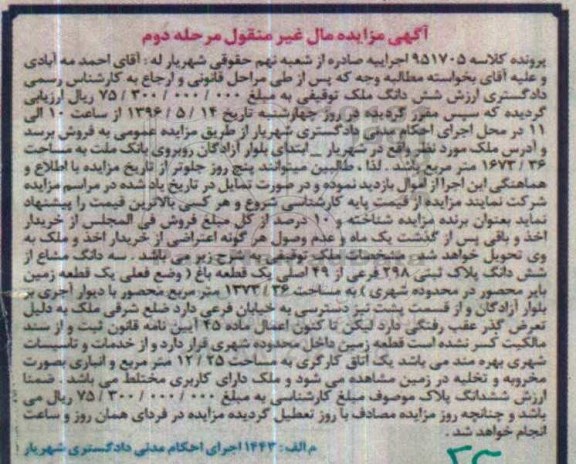 آگهی مزایده مال غیر منقول مرحله دوم
پرونده کلاسه ۹۵۱۷۰۵ اجراییه صادره از شعبه نهم حقوقی شهریار له : آقای احمد مه آبادی
و علیه آقای بخواسته مطالبه وجه که پس از طی مراحل قانونی و ارجاع به کارشناس رسمی
دادگستری ارزش شش دانگ ملک توقیفی به مبلغ ۰۰۰ / ۰۰۰ / ۳۰۰ / ۷۵ ریال ارزیابی
گردیده که سپس مقرر گردیده در روز چهارشنبه تاریخ ۱۴ / ۵ / ۱۳۹۶ از ساعت ۱۰ الی
۱۱ در محل اجرای احکام مدنی دادگستری شهریار از طریق مزایده عمومی به فروش برسد
و آدرس ملک مورد نظر واقع در شهریار _ ابتدای بلوار آزادگان روبروی بانک ملت به مساحت
۳۶ / ۱۶۷۳ متر مربع باشد . لذا ، طالبین میتوانند پنج روز جلوتر از تاریخ مزایده با اطلاع و
هماهنگی این اجرا از اموال بازدید نموده و در صورت تمایل در تاریخ یاد شده در مراسم مزایده
شرکت نمایند مزایده از قیمت پایه کارشناسی شروع و هر کسی بالاترین قیمت را پیشنهاد
نماید بعنوان برنده مزایده شناخته و ۱۰ درصد از کل مبلغ فروش فی المجلس از خریدار
اخذ و باقی پس از گذشت یک ماه و عدم وصول هر گونه اعتراضی از خریدار اخذ و ملک به
وی تحویل خواهد شد . مشخصات ملک توقیفی به شرح زیر می باشد . سه دانگ مشاع از
شش دانگ پلاک ثبتی ۲۹۸ فرعی از ۴۹ اصلی یک قطعه باغ ( وضع فعلی یک قطعه زمین
بایر محصور در محدوده شهری ) به مساحت ۳۶ / ۱۳۷۳ متر مربع محصور با دیوار آجری بر
بلوار آزادگان و از قسمت پشت نیز دسترسی به خیابان فرعی دارد ضلع شرقی ملک به دلیل
تعرض گذر عقب رفتگی دارد لیکن تا کنون اعمال ماده ۴۵ آیین نامه قانون ثبت و از سند
مالکیت کسر نشده است قطعه زمین داخل محدوده شهری قرار دارد و از خدمات و تاسیسات
شهری بهره مند می باشد یک اتاق کارگری به مساحت ۲۵ / ۱۲ متر مربع و انباری بصورت
مخروبه و تخلیه در زمین مشاهده می شود و ملک دارای کاربری مختلط می باشد . ضمنا
ارزش ششدانگ پلاک موصوف مبلغ کارشناسی به مبلغ ۰۰۰ / ۰۰۰ / ۳۰۰ / ۷۵ ریال می
باشد و چنانچه روز مزایده مصادف با روز تعطیل گردیده مزایده در فردای همان روز و ساعت
انجام خواهد شد .
م الف : ۱۴۴۳ اجرای احکام مدنی دادگستری شهریار